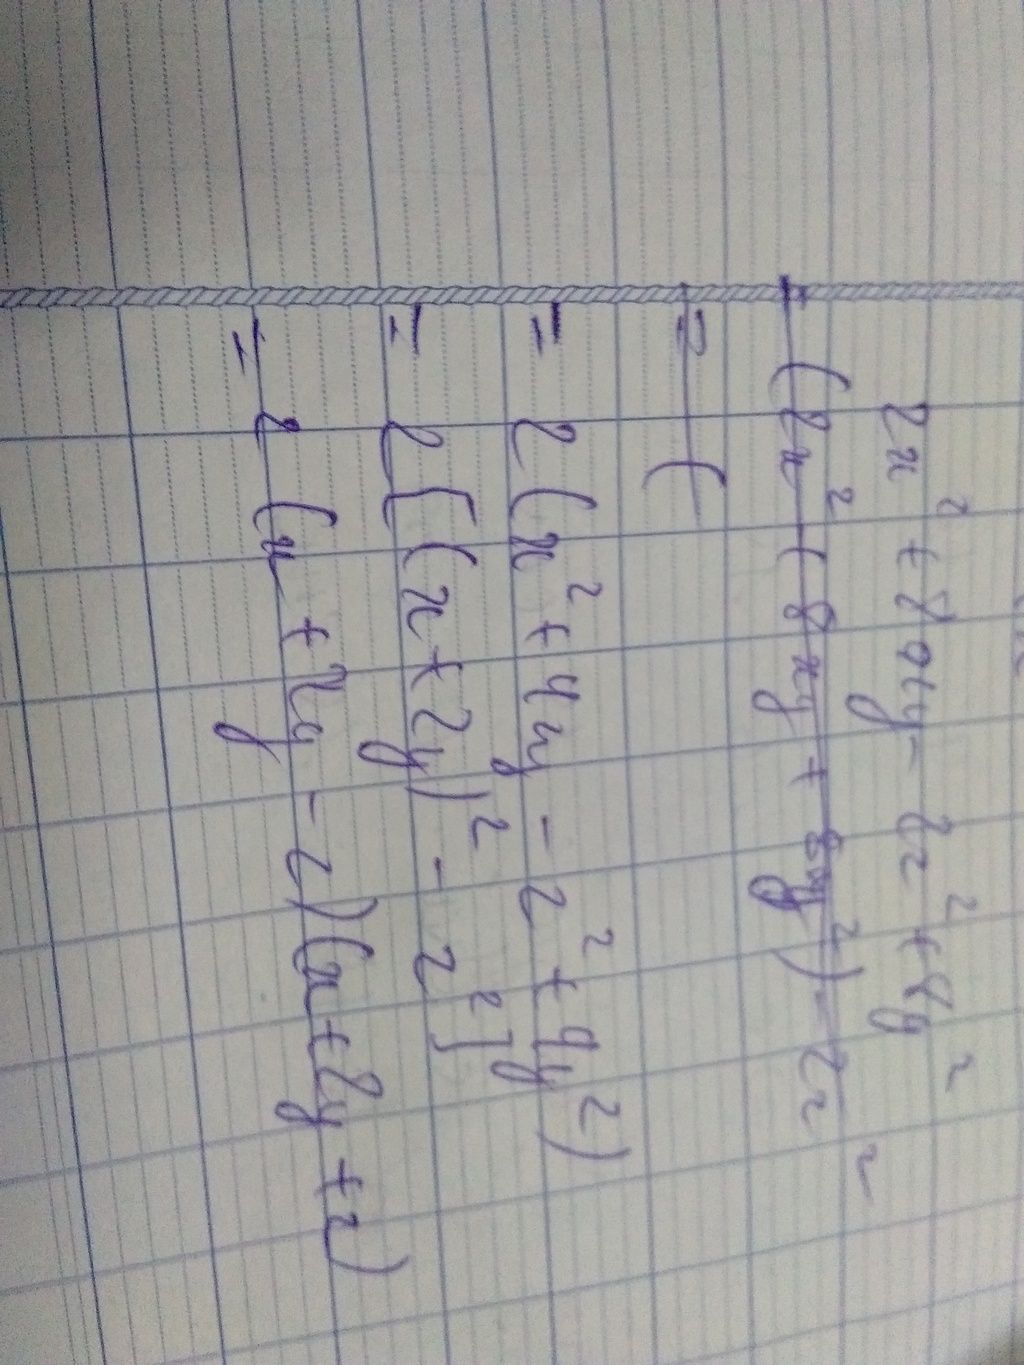 2x² + 8xy - 2z² + 8y²
= (2x² + 8xy + 8y²) - 2z²
= (
= 2(x² + 4xy - z² + 4y²)
= 2[(x + 2y)² - z²]
= 2(x + 2y - z)(x + 2y + z)